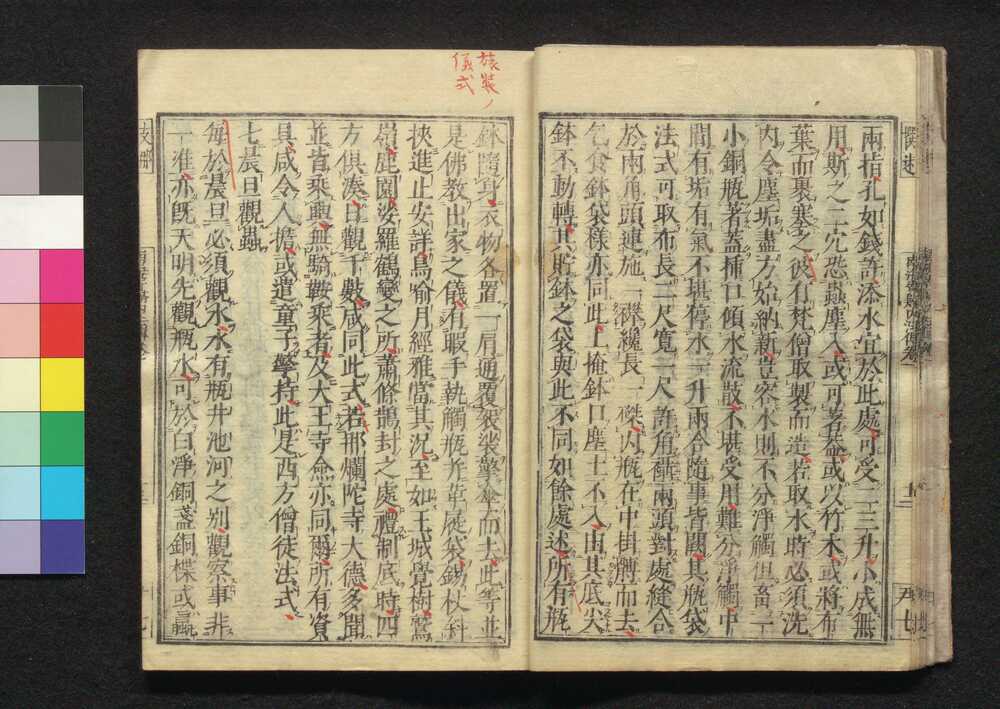 兩指孔如錢許添水宜於此處可受二三升小成無
用斯之二穴恐蟲塵入或可著蓋或以竹木或將布
葉而裹塞之彼有梵僧取製而造若取水時必須洗
内令塵垢盡方始納新豈容水則不分淨觸但畜一
小銅瓶著蓋插口傾水流散不堪受用難分淨觸中
間有垢有氣不堪停水一升兩合隨事皆闕其瓶袋
法式可取布長二尺寛一尺許角䙅兩頭對處縫合
於兩角頭連施一襻纔長一磔内瓶在中掛髆而去
乞食鉢袋樣亦同此上掩鉢口塵土不入由其底尖
鉢不動轉其貯鉢之袋與此不同如餘處述所有瓶
旅装ノ
儀式
鉢隨身衣物各置一肩通覆袈裟擎傘而去此等並
是佛教出家之儀有暇手執觸瓶并革屣袋錫杖斜
挾進止安詳鳥喻月經雅當其況至如王城覺樹鷲
嶺鹿園娑羅鶴變之所蕭條鵲封之處禮制底時四
方倶湊日觀千數咸同此式若那爛陀寺大德多聞
並皆乘輿無騎鞍乘者及大王寺僉亦同爾所有資
具咸令人擔或遣童子擎持此是西方僧徒法式
七晨旦觀蟲
毎於晨旦必須觀水水有瓶井池河之別觀察事非
一准亦既天明先觀瓶水可於白淨銅盞銅楪或蠃